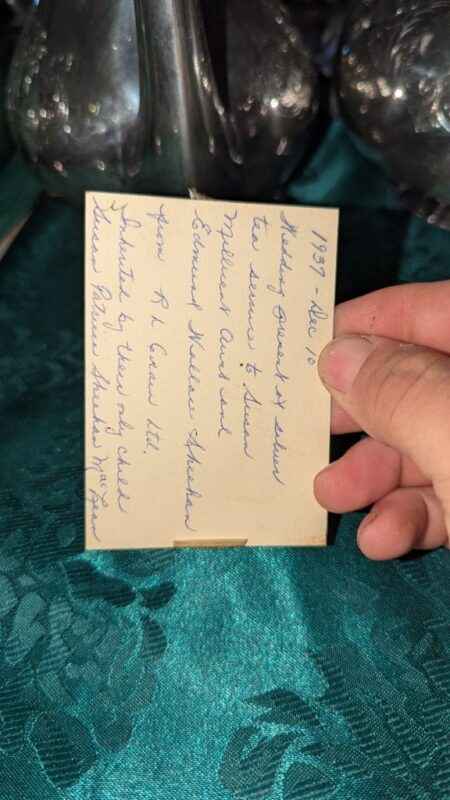 1937 - Dec 10
Wedding present of silver
tea service to Susan
Millicent Aunt and
Edmund Wallace Sheehan
from R L Crain Ltd.
Inherited by their only child
Susan Patricia Sheehan MacLean